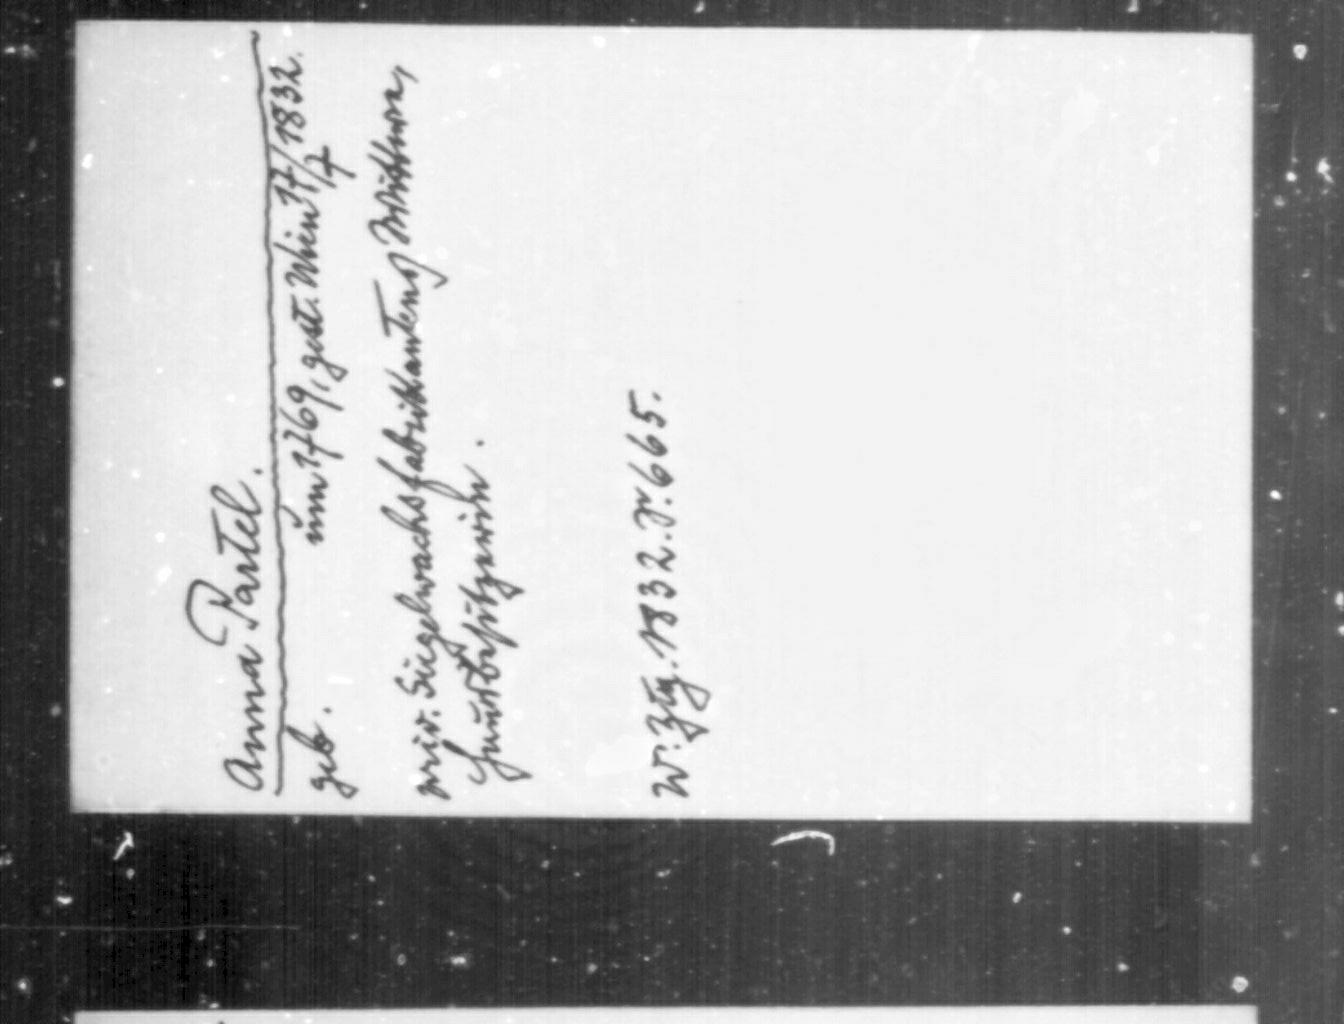 Anna Partel.
geb. um 1769, gest. Wien 17/7 1832.
priv. Siegelwachsfabrikantens Witwe,
Hausbesitzerin.
W. Ztg. 1832. S. 665.